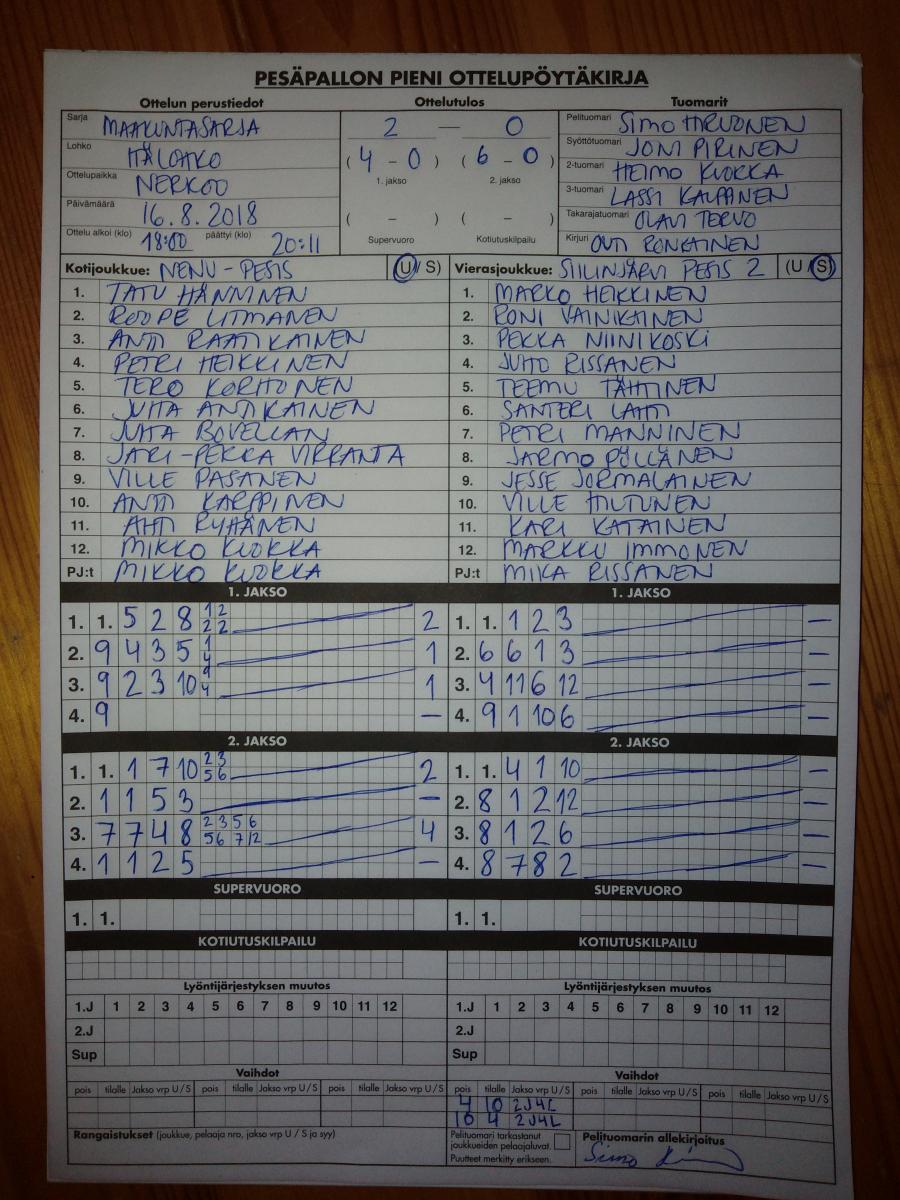 PESÄPALLON PIENI OTTELUPÖYTÄKIRJA
Ottelun perustiedot Ottelutulos Tuomarit
Sarja MAAKUNTASARJA 2 — 0 Pelituomari SIMO HIRVONEN
Lohko ITÄLOHKO ( 4 - 0 ) ( 6 - 0 ) Syöttötuomari JONI PIRINEN
1. jakso 2. jakso
Ottelupaikka NERKOO 2-tuomari HEIMO KUOKKA
3-tuomari LASSI KAUPPINEN
Päivämäärä 16.8.2018 ( - ) ( - ) Takarajatuomari OLAVI TERVO
Ottelu alkoi (klo) 18:00 päättyi (klo) 20:11 Supervuoro Kotiutuskilpailu Kirjuri OUTI RONKAINEN
Kotijoukkue: NENU - PESIS (U / S) Vierasjoukkue: SIILINJÄRVI PESIS 2 (U / S)
1. TATU HÄNNINEN 1. MARKO HEIKKINEN
2. ROOPE LITMANEN 2. RONI VAINIKAINEN
3. ANTTI RAATIKAINEN 3. PEKKA NIINIKOSKI
4. PETRI HEIKKINEN 4. JUHO RISSANEN
5. TERO KORHONEN 5. TEEMU TÄHTINEN
6. JUHA ANTIKAINEN 6. SANTERI LAHTI
7. JUHA BOVELLAN 7. PETRI MANNINEN
8. JARI-PEKKA VIRRANTA 8. JARMO PÖLLÄNEN
9. VILLE PASANEN 9. JESSE JORMALAINEN
10. ANTTI KARPPINEN 10. VILLE HILTUNEN
11. AHTI RYHÄNEN 11. KARI KATAINEN
12. MIKKO KUOKKA 12. MARKKU IMMONEN
PJ:t MIKKO KUOKKA PJ:t MIKA RISSANEN
1. JAKSO 1. JAKSO
1. 1. 5 2 8 1 2 2 2 2 1. 1. 1 2 3 —
2. 9 4 3 5 1 4 1 2. 6 6 1 3 —
3. 9 2 3 10 9 4 1 3. 4 11 6 12 —
4. 9 — 4. 9 1 10 6 —
2. JAKSO 2. JAKSO
1. 1. 1 7 10 2 3 5 6 2 1. 1. 4 1 10 —
2. 1 1 5 3 — 2. 8 1 2 12 —
3. 7 7 4 8 2 3 5 6 5 6 7 12 4 3. 8 1 2 6 —
4. 1 1 2 5 — 4. 8 7 8 2 —
SUPERVUORO SUPERVUORO
1. 1. 1. 1.
KOTIUTUSKILPAILU KOTIUTUSKILPAILU
Lyöntijärjestyksen muutos Lyöntijärjestyksen muutos
1.J 1 2 3 4 5 6 7 8 9 10 11 12 1.J 1 2 3 4 5 6 7 8 9 10 11 12
2.J 2.J
Sup Sup
Vaihdot Vaihdot
pois tilalle Jakso vrp U / S pois tilalle Jakso vrp U / S pois tilalle Jakso vrp U / S pois tilalle Jakso vrp U / S pois tilalle Jakso vrp U / S pois tilalle Jakso vrp U / S
4 10 2J4L
10 4 2J4L
Rangaistukset (joukkue, pelaaja nro, jakso vrp U / S ja syy) Pelituomari tarkastanut joukkueiden pelaajaluvat. Pelituomarin allekirjoitus
Puutteet merkitty erikseen. Simo